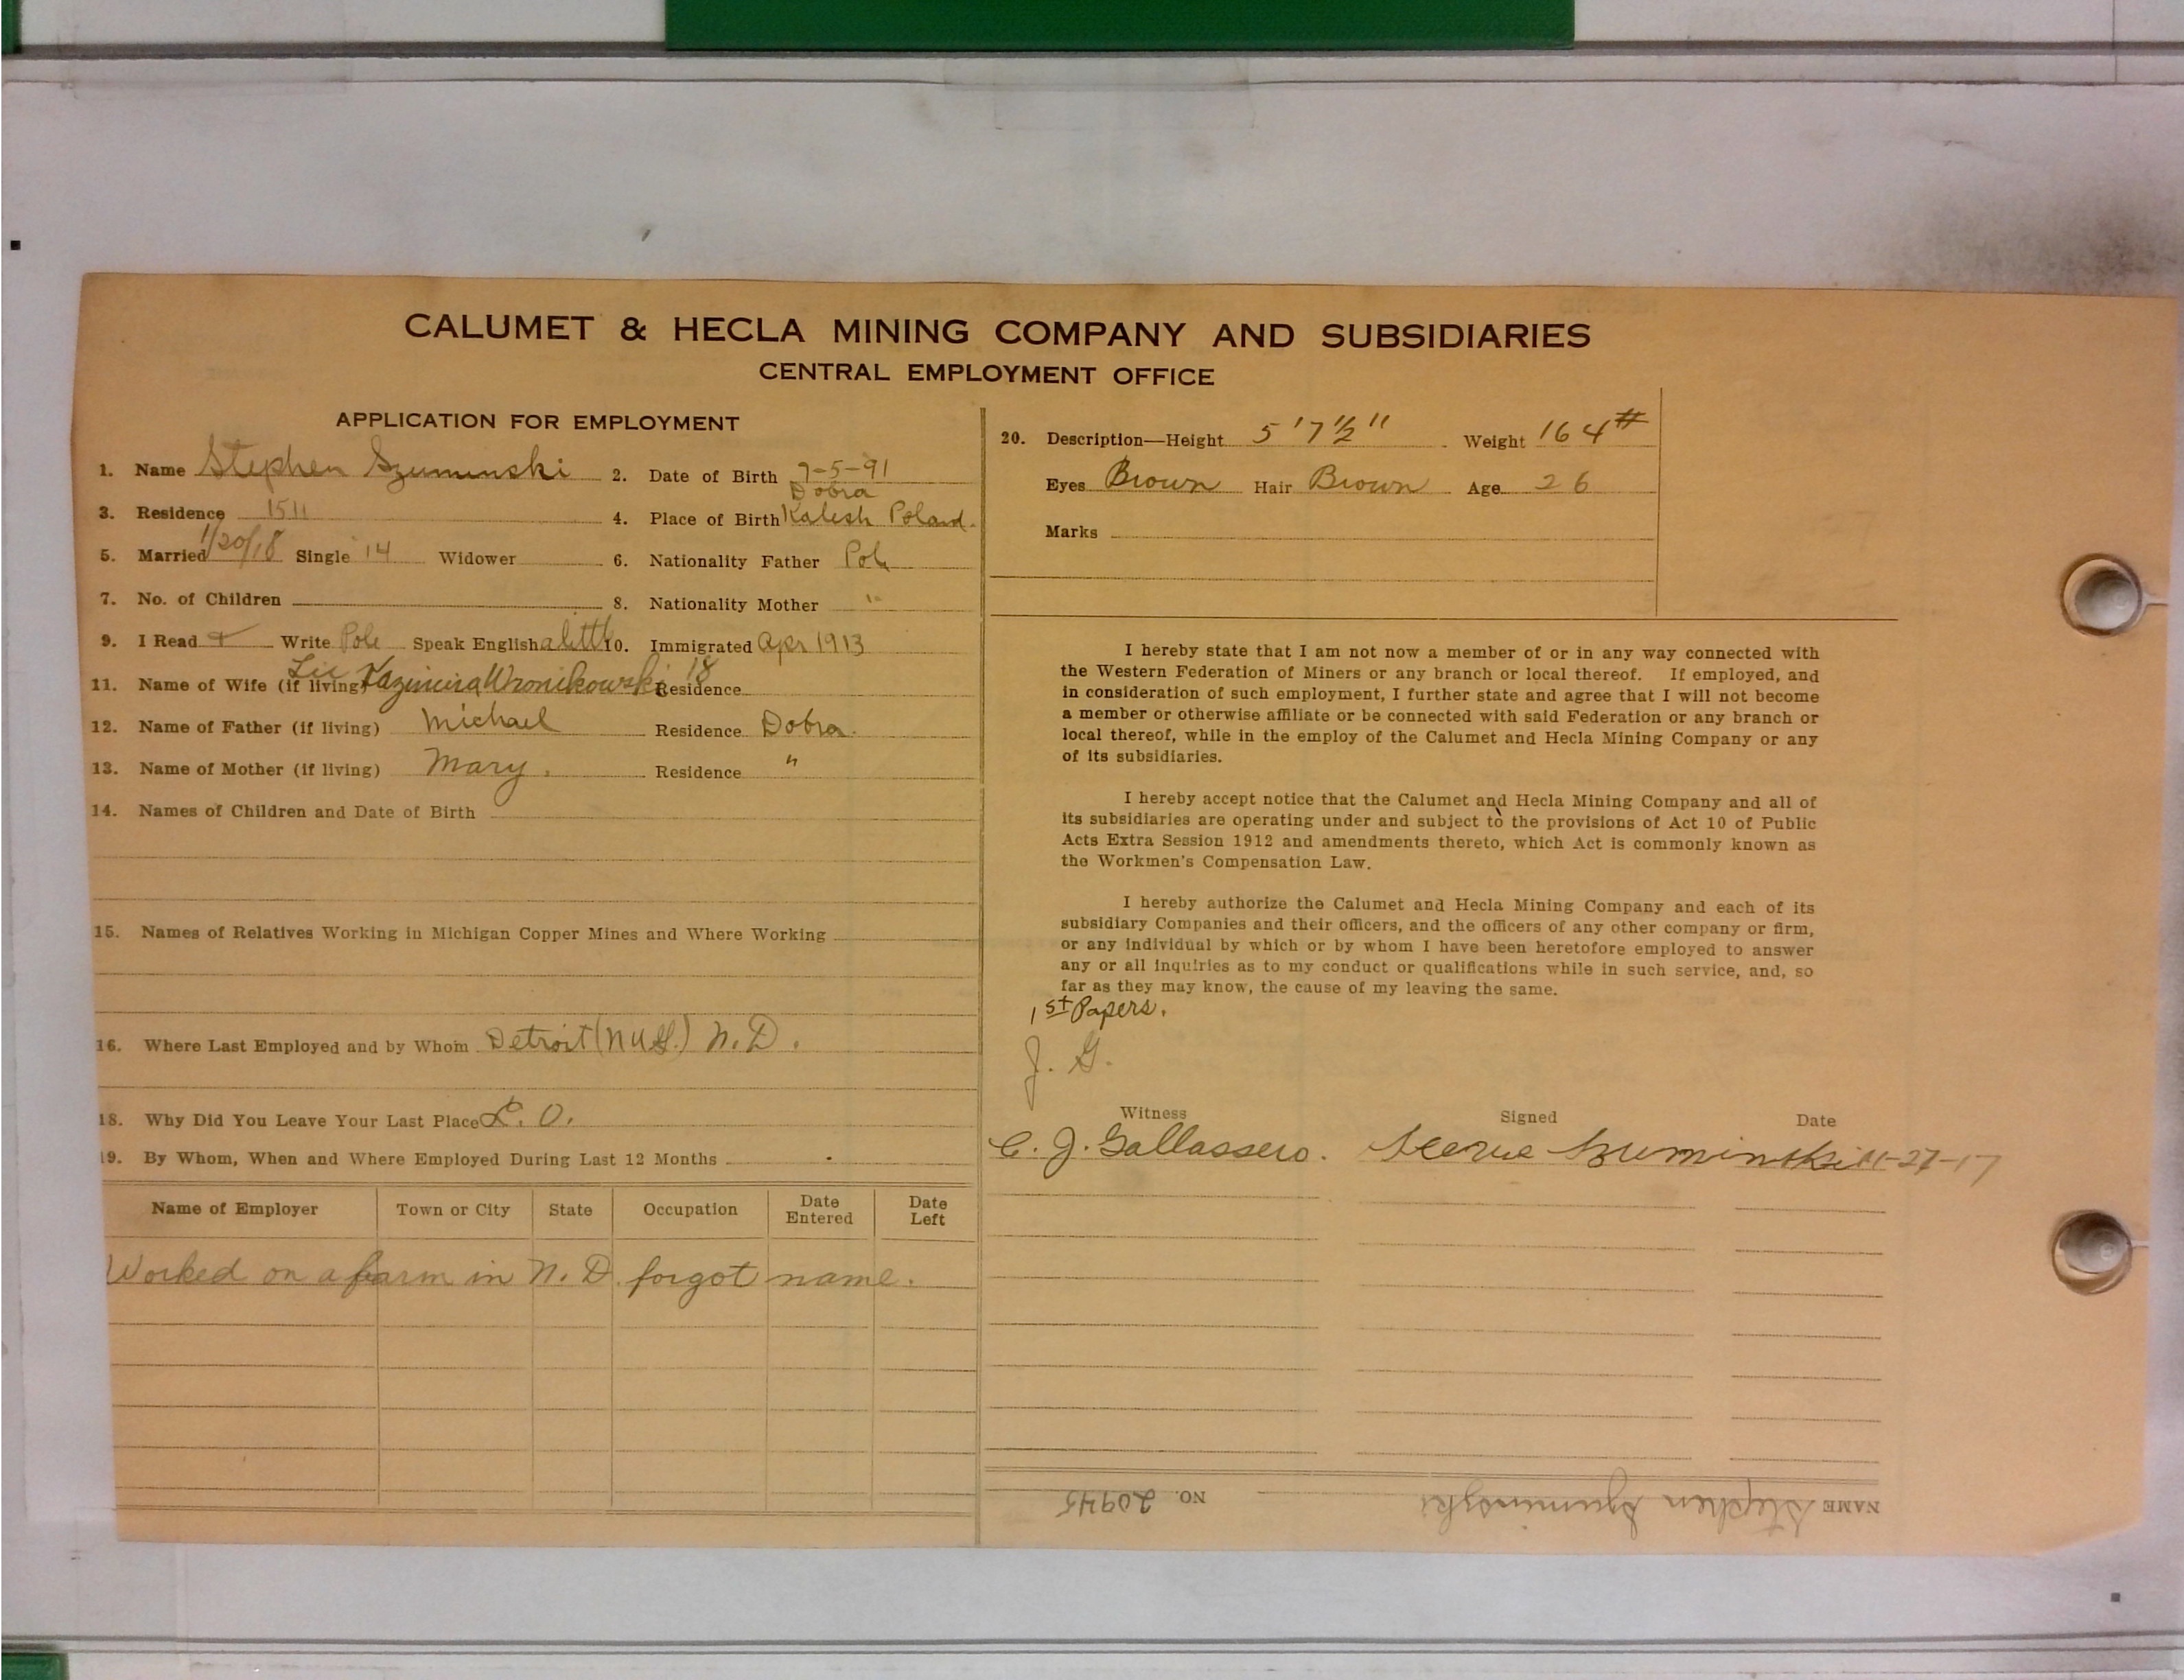 CALUMET & HECLA MINING COMPANY AND SUBSIDIARIES
CENTRAL EMPLOYMENT OFFICE
APPLICATION FOR EMPLOYMENT
1. Name Stephen Szuminski 2. Date of Birth 7-5-91
3. Residence 1511 4. Place of Birth Dobra Kalesh Poland.
5. Married 1/20/18 Single 14 Widower 6. Nationality Father Pole
7. No. of Children 8. Nationality Mother "
9. I Read + Write Pole Speak English a little 10. Immigrated Apr 1913
11. Name of Wife (if living) Lic Kazimira Wronikowski 18 Residence
12. Name of Father (if living) Michael Residence Dobra.
13. Name of Mother (if living) Mary. Residence "
14. Names of Children and Date of Birth
15. Names of Relatives Working in Michigan Copper Mines and Where Working
16. Where Last Employed and by Whom Detroit N.D.
18. Why Did You Leave Your Last Place L. O.
19. By Whom, When and Where Employed During Last 12 Months
Name of Employer Town or City State Occupation Date Entered Date Left
Worked on a farm in N. D. forgot name.
20. Description—Height 5'7½" Weight 164#
Eyes Brown Hair Brown Age 26
Marks
I hereby state that I am not now a member of or in any way connected with
the Western Federation of Miners or any branch or local thereof. If employed, and
in consideration of such employment, I further state and agree that I will not become
a member or otherwise affiliate or be connected with said Federation or any branch or
local thereof, while in the employ of the Calumet and Hecla Mining Company or any
of its subsidiaries.
I hereby accept notice that the Calumet and Hecla Mining Company and all of
its subsidiaries are operating under and subject to the provisions of Act 10 of Public
Acts Extra Session 1912 and amendments thereto, which Act is commonly known as
the Workmen's Compensation Law.
I hereby authorize the Calumet and Hecla Mining Company and each of its
subsidiary Companies and their officers, and the officers of any other company or firm,
or any individual by which or by whom I have been heretofore employed to answer
any or all inquiries as to my conduct or qualifications while in such service, and, so
far as they may know, the cause of my leaving the same.
1st Papers.
J. G.
Witness Signed Date
C. J. Gallassero. Szuminski 11-27-17
NAME Stephen Szuminski NO. 20945